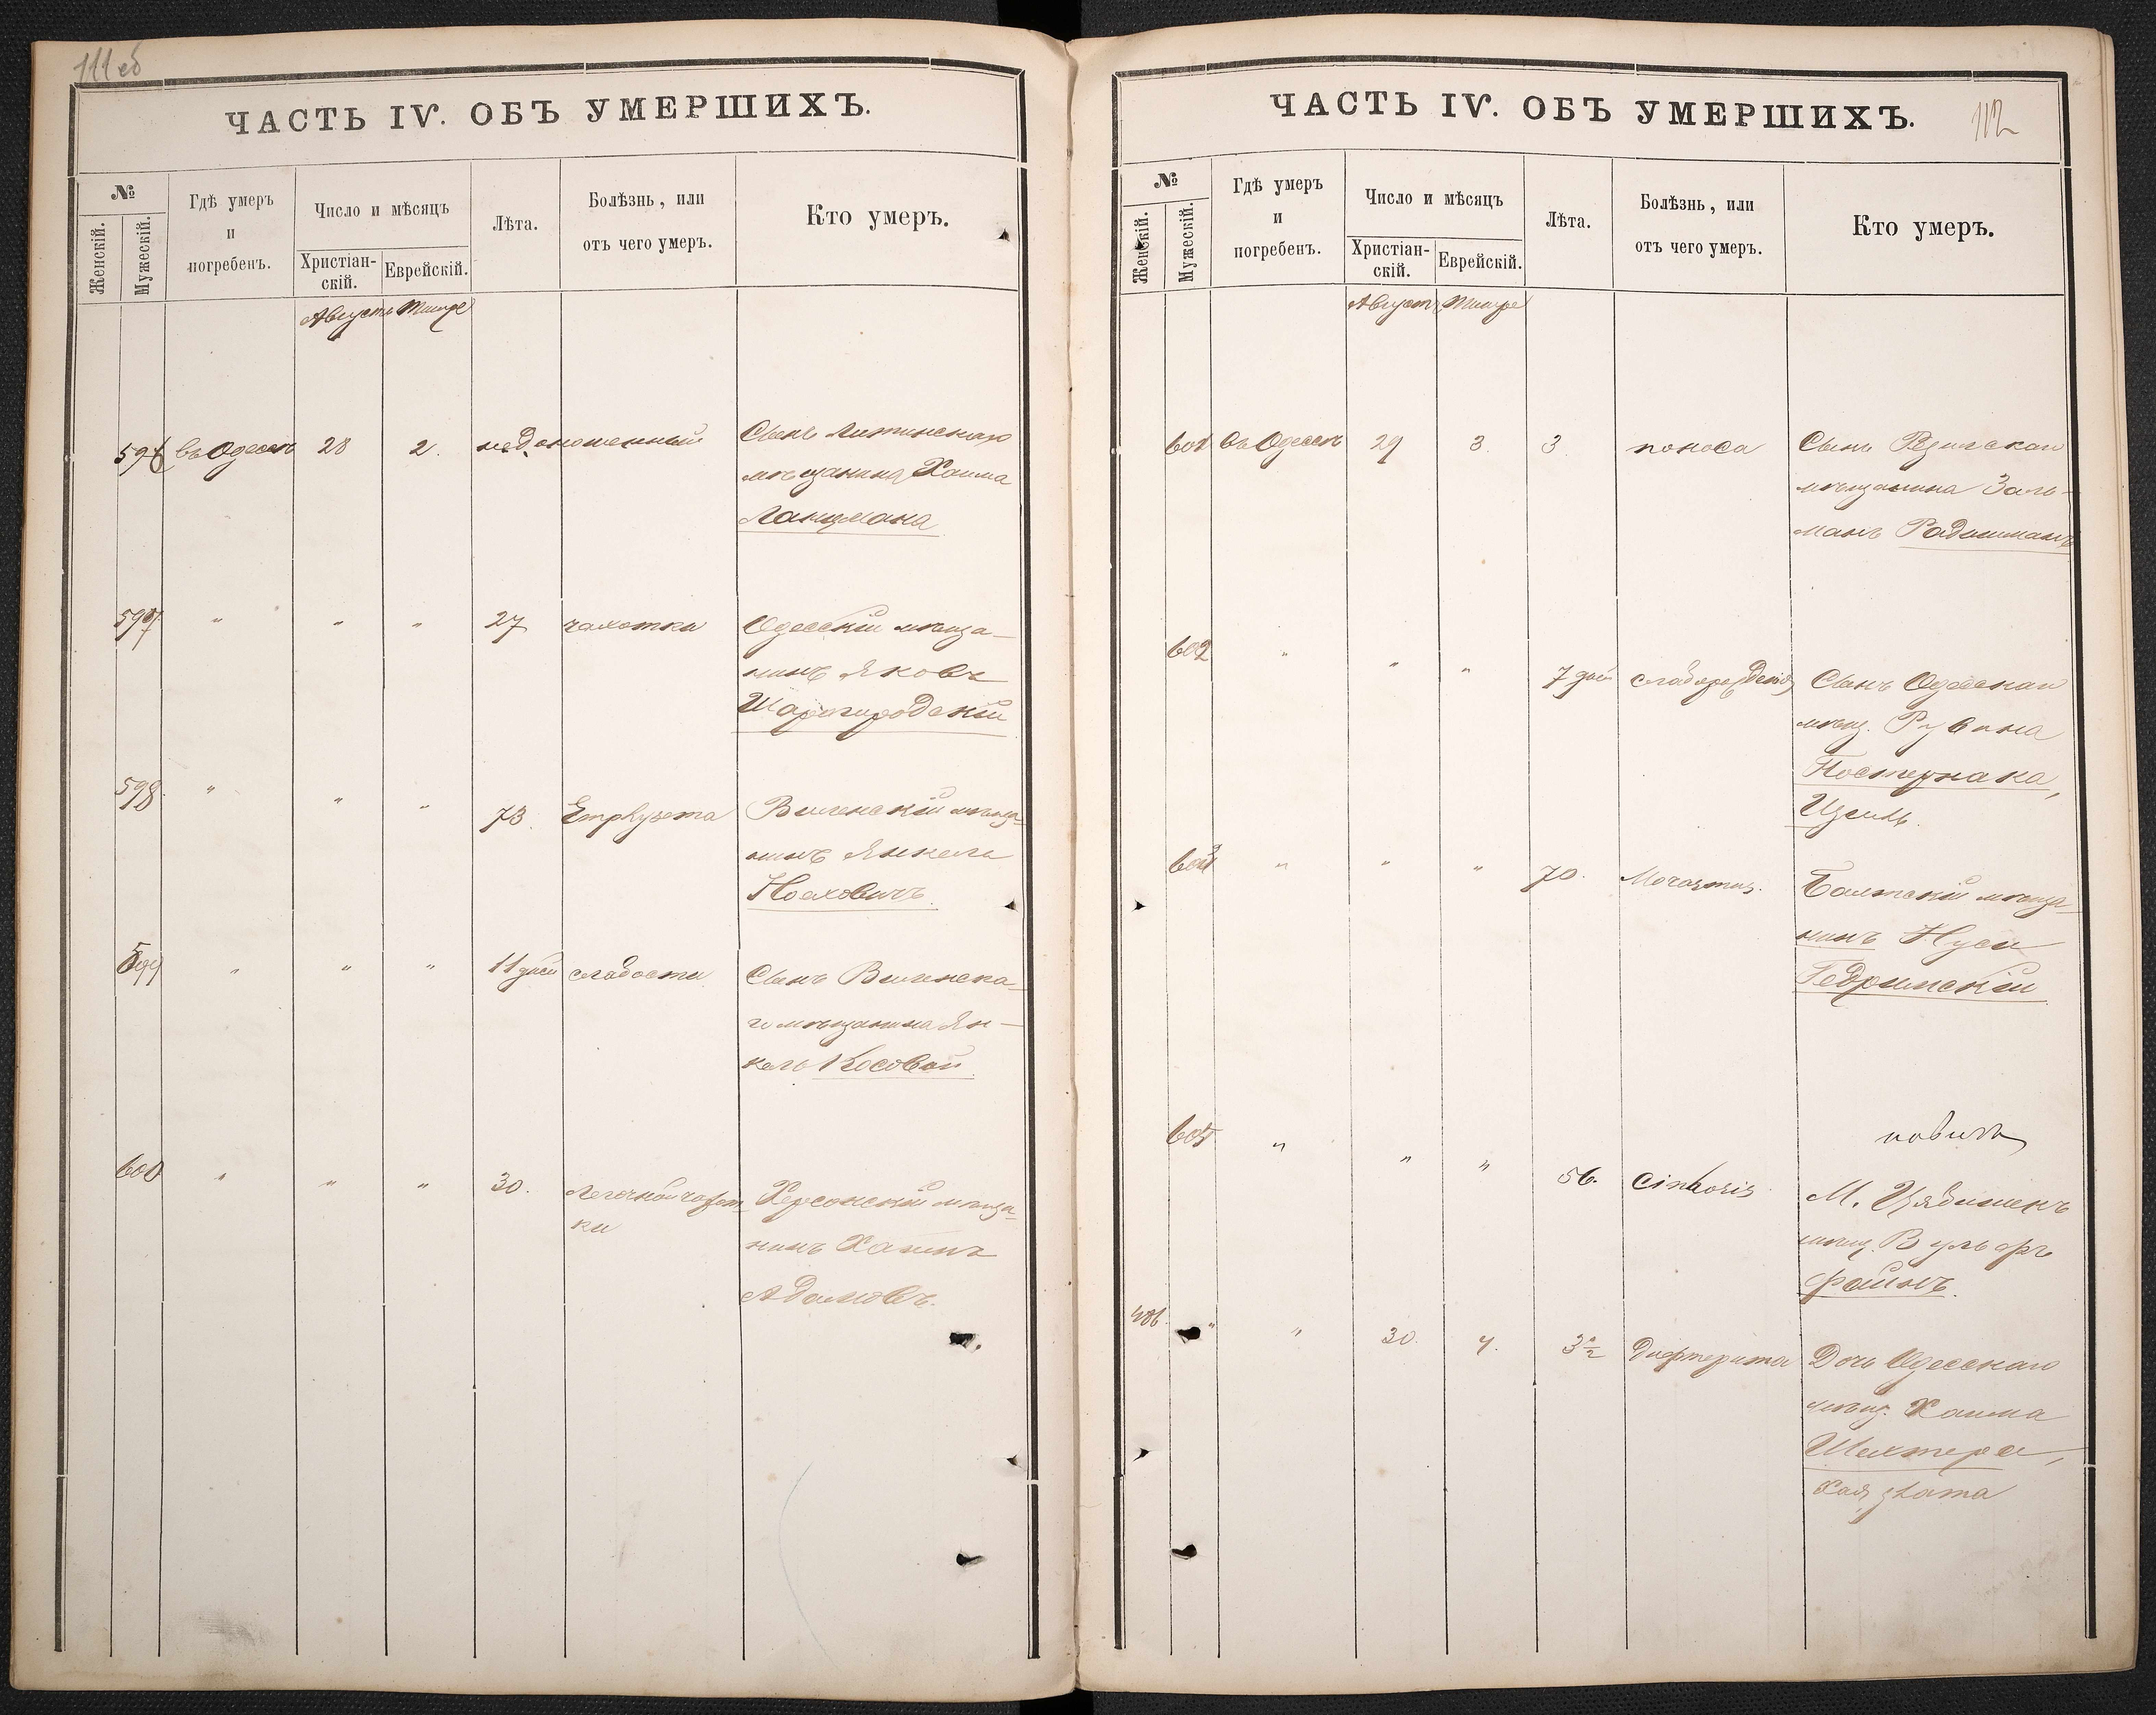 111 об
ЧАСТЬ IV. ОБЪ УМЕРШИХЪ.
№
Женскій.
Мужескій.
Гдѣ умеръ
и
погребенъ.
Число и мѣсяцъ
Христіан-
скій.
Еврейскій.
Лѣта.
Болѣзнь, или
отъ чего умеръ.
Кто умеръ.
Августъ Тишре
596 въ Одессѣ 28 2. недоношенный Сынъ Литинскаго
мѣщанина Хаима
Ланцмана
597 " " " 27 чахотки Одесскій мѣща-
нинъ Яковъ
Шаргородскій
598 " " " 73. Emphysema Виленскій мѣща-
нинъ Янкель
Ноаховичъ.
599 " " " 11 дней слабости Сынъ Виленска-
го мѣщанина Ян-
кель Косовой.
600 " " " 30. Легочной чахот-
ки
Херсонскій мѣща-
нинъ Хаимъ
Адамовъ.
ЧАСТЬ IV. ОБЪ УМЕРШИХЪ.
112
№
Женскій.
Мужескій.
Гдѣ умеръ
и
погребенъ.
Число и мѣсяцъ
Христіан-
скій.
Еврейскій.
Лѣта.
Болѣзнь, или
отъ чего умеръ.
Кто умеръ.
Августъ Тишре
601 въ Одессѣ 29 3. 3. поноса Сынъ
мѣщанина Заль-
манъ
602 " " " 7 дней Сынъ Одесскаго
мѣщ. Рувина
Постернака,
" " " 70. Marasmus. Балтскій мѣща-
нинъ Нусн
" " " 56. М.
мѣщ. Вульфъ
Файнъ.
486. " " 30. 4. 3 1/2 Дифтерита Дочь Одесскаго
мѣщ. Хаима
Шахтера,
Хая Злата